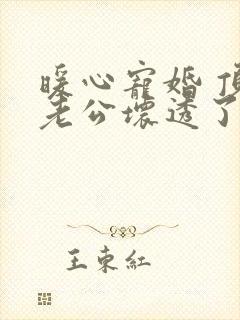 暖心寵婚 頂
老公壞透了
王東紅